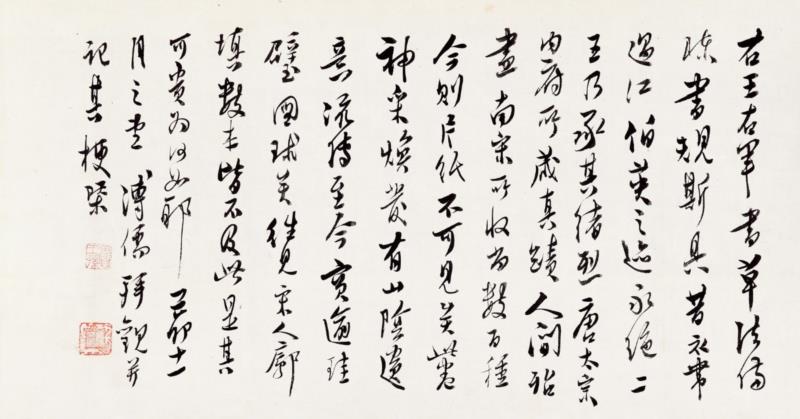 右王右軍書草法備
臻書規斯具昔衣帶
過江伯英之迹永絕二
王乃承其緒烈唐太宗
內府所藏真蹟人間殆
盡南宋所收尚數百種
今則片紙不可見矣此卷
神采煥發有山陰遺
意流傳至今寶逾珪
璧圖球矣往見宋人廓
填數本皆不及此是其
可貴為何如耶 己卯十一
月之 溥儒拜觀并
記其梗槩